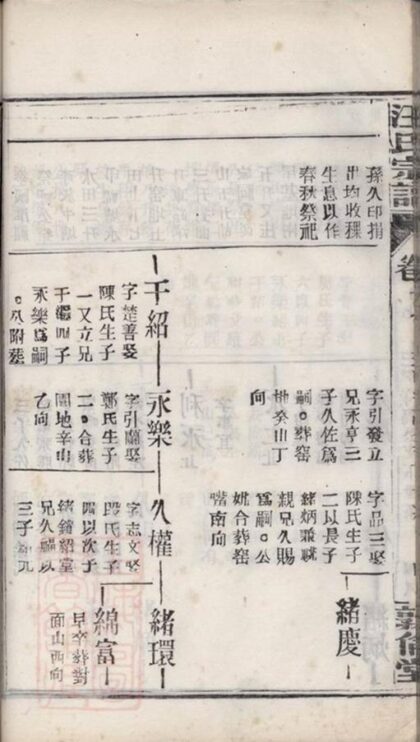 汪氏宗譜
卷
倫堂
孫久印捐
出均收稞
生息以作
春秋祭祀
字引發立
兄永亨三
子久佐爲
嗣。葬窑
癸山丁
向
字品三娶
陳氏生子
二以長子
緒炳兼祧
親兄久賜
爲嗣。公
妣合葬窑
嘴南向
緒慶
于紹
永樂
久權
緒環
字楚善娶
陳氏生子
一又立兄
于 四子
永樂爲嗣
附葬
字引蘭娶
鄭氏生子
二。合葬
園地辛山
乙向
字志文娶
段氏生子
四以次子
緒 紹堂
兄久 以
三子緒元
綿富
早卒葬對
面山西向